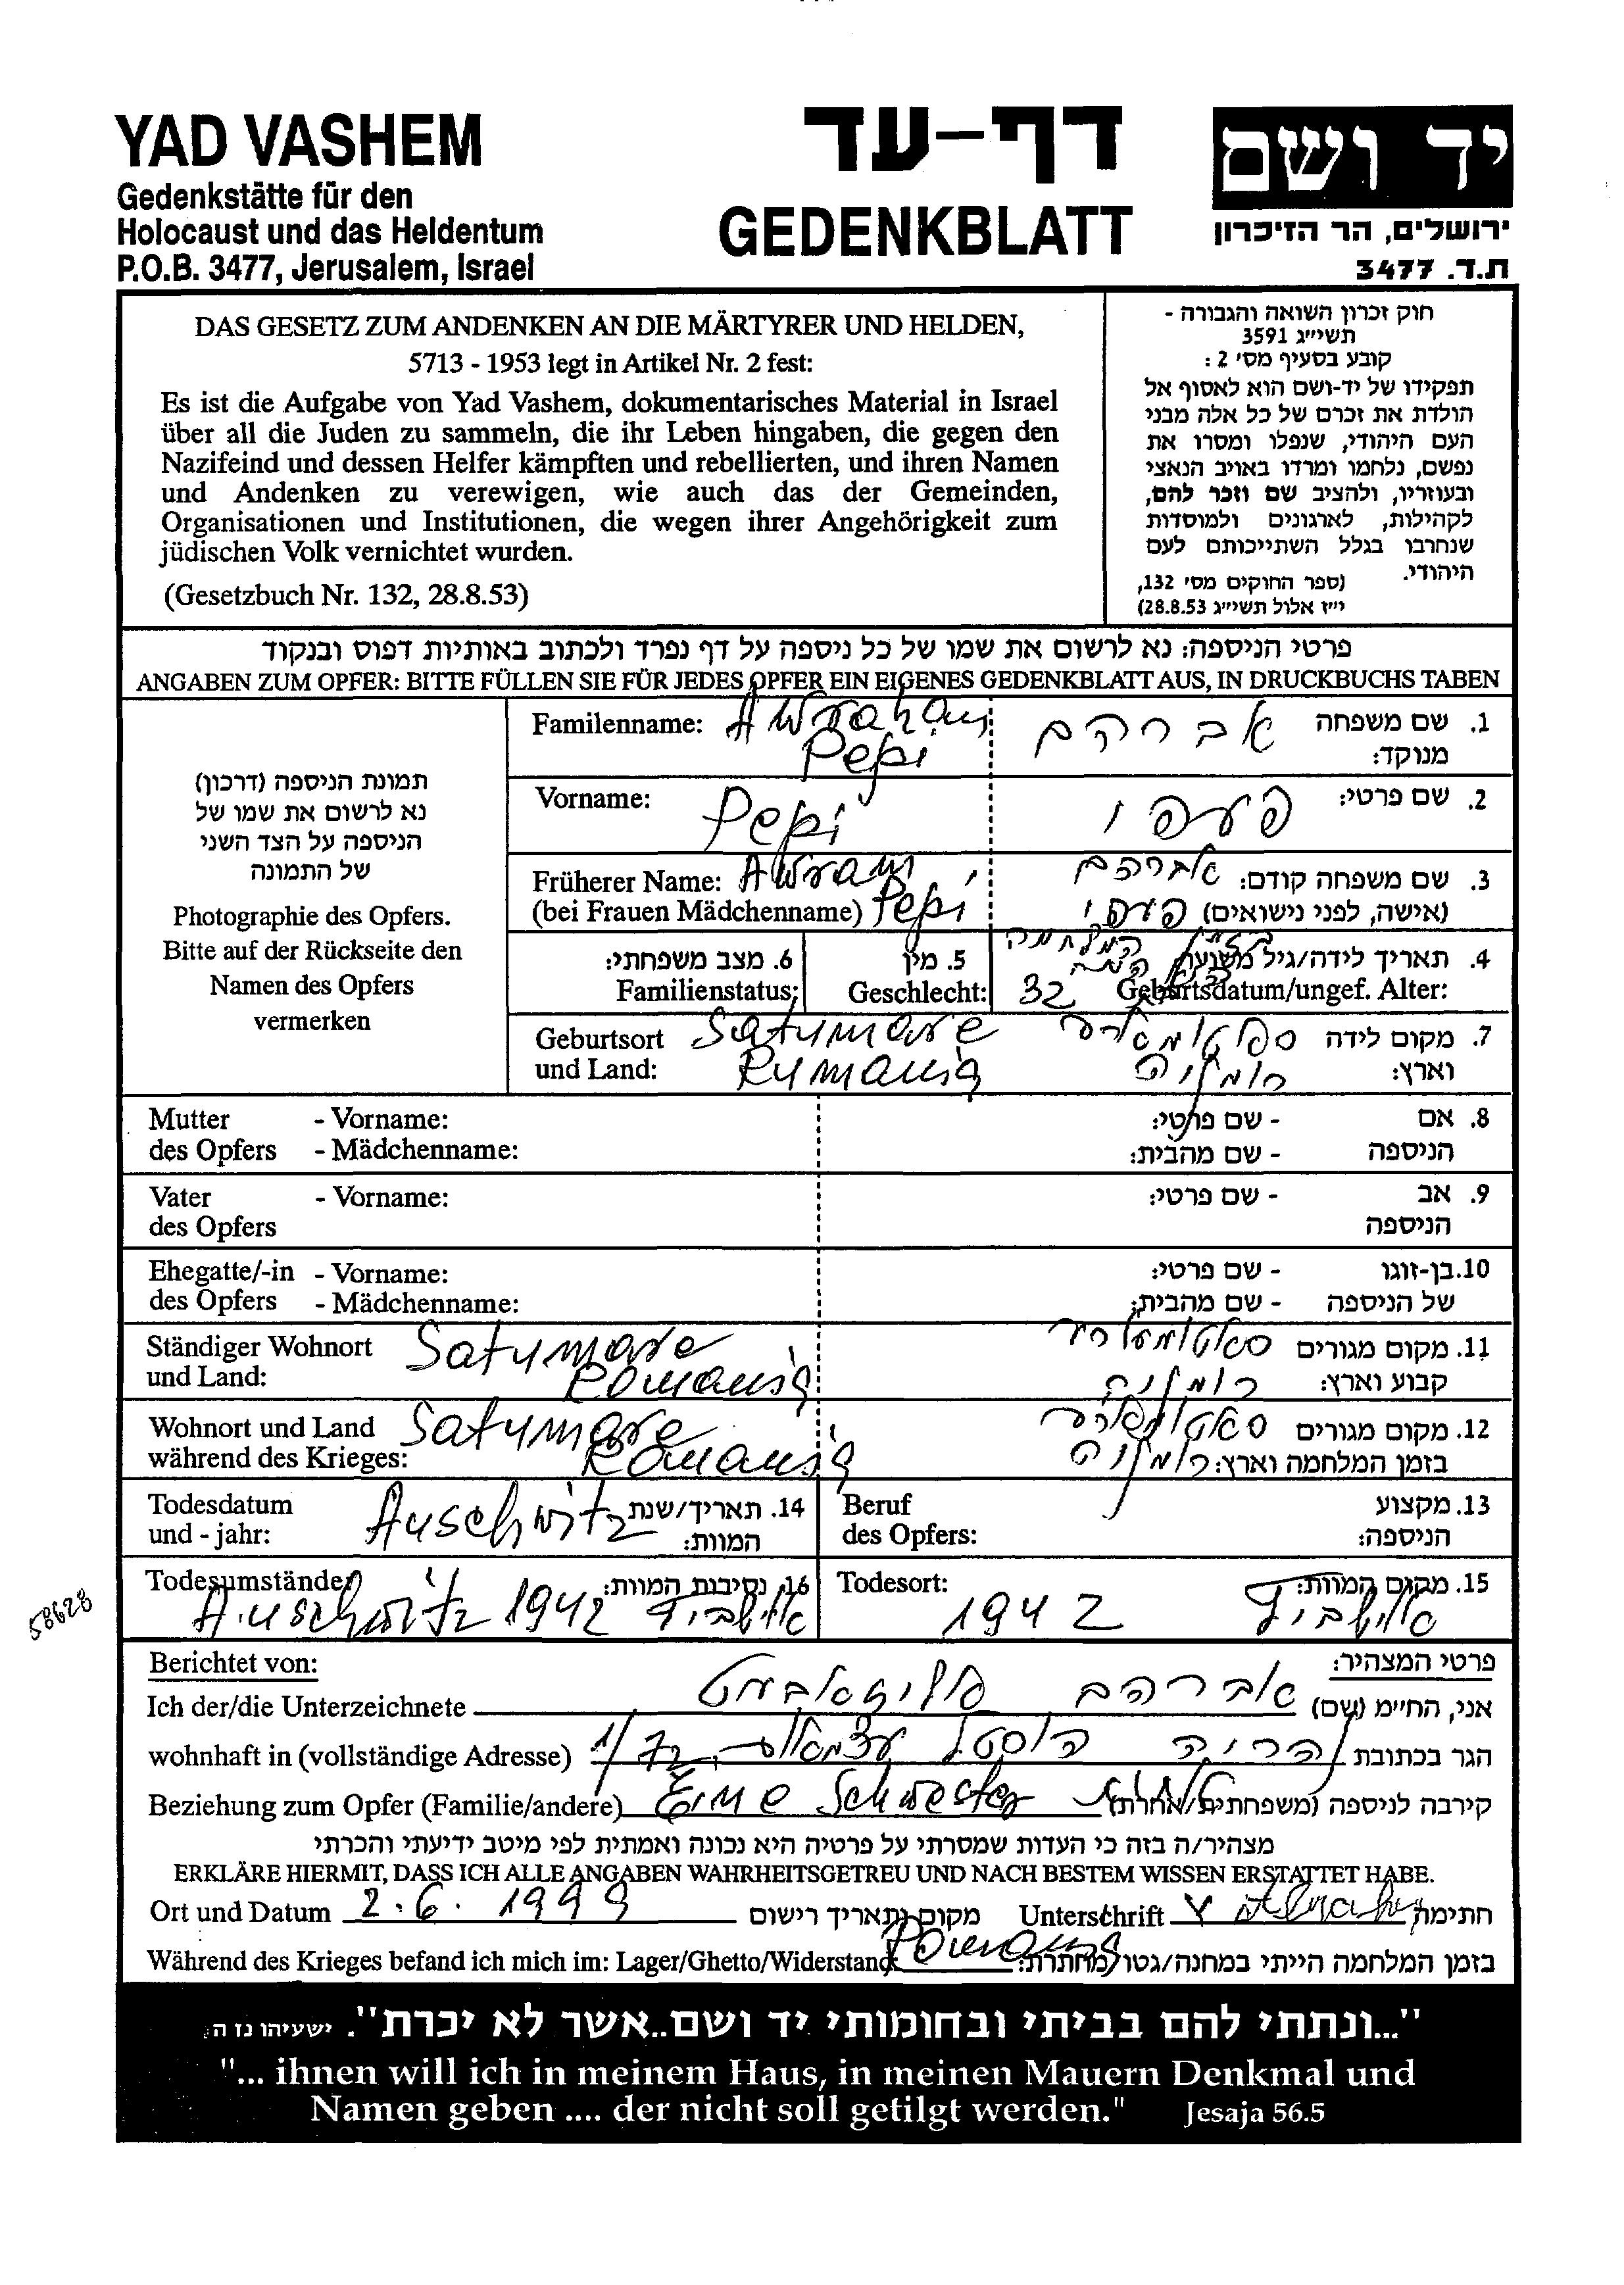 YAD VASHEM
Gedenkstätte für den
Holocaust und das Heldentum
P.O.B. 3477, Jerusalem, Israel
דף-עד
GEDENKBLATT
יד ושם
ירושלים, הר הזיכרון
ת.ד. 3477
DAS GESETZ ZUM ANDENKEN AN DIE MÄRTYRER UND HELDEN,
5713 - 1953 legt in Artikel Nr. 2 fest:
Es ist die Aufgabe von Yad Vashem, dokumentarisches Material in Israel
über all die Juden zu sammeln, die ihr Leben hingaben, die gegen den
Nazifeind und dessen Helfer kämpften und rebellierten, und ihren Namen
und Andenken zu verewigen, wie auch das der Gemeinden,
Organisationen und Institutionen, die wegen ihrer Angehörigkeit zum
jüdischen Volk vernichtet wurden.
(Gesetzbuch Nr. 132, 28.8.53)
חוק זכרון השואה והגבורה -
תשי״ג 3591
קובע בסעיף מס׳ 2 :
תפקידו של יד-ושם הוא לאסוף אל
הולדת את זכרם של כל אלה מבני
העם היהודי, שנפלו ומסרו את
נפשם, נלחמו ומרדו באויב הנאצי
ובעוזריו, ולהציב שם וזכר להם,
לקהילות, לארגונים ולמוסדות
שנחרבו בגלל השתייכותם לעם
היהודי. (ספר החוקים מס׳ 132,
י״ז אלול תשי״ג 28.8.53)
פרטי הניספה: נא לרשום את שמו של כל ניספה על דף נפרד ולכתוב באותיות דפוס ובנקוד
ANGABEN ZUM OPFER: BITTE FÜLLEN SIE FÜR JEDES OPFER EIN EIGENES GEDENKBLATT AUS, IN DRUCKBUCHS TABEN
תמונת הניספה (דרכון)
נא לרשום את שמו של
הניספה על הצד השני
של התמונה
Photographie des Opfers.
Bitte auf der Rückseite den
Namen des Opfers
vermerken
Familenname: Awraham אברהם 1. שם משפחה
Pepi מנוקד:
Vorname: Pepi פעפי 2. שם פרטי:
Früherer Name: Awram אברהם 3. שם משפחה קודם:
(bei Frauen Mädchenname) Pepi פעפי (אישה, לפני נישואים)
6. מצב משפחתי: 5. מין 4. תאריך לידה/גיל משוער
Familienstatus: Geschlecht: 32 Geburtsdatum/ungef. Alter:
Geburtsort Satymare 7. מקום לידה
und Land: Rymania רומניה וארץ:
Mutter - Vorname: - שם פרטי: 8. אם
des Opfers - Mädchenname: - שם מהבית: הניספה
Vater - Vorname: - שם פרטי: 9. אב
des Opfers הניספה
Ehegatte/-in - Vorname: - שם פרטי: 10. בן-זוגו
des Opfers - Mädchenname: - שם מהבית: של הניספה
Ständiger Wohnort Satymare 11. מקום מגורים
und Land: Romania רומניה קבוע וארץ:
Wohnort und Land Satymare 12. מקום מגורים
während des Krieges: Romania רומניה בזמן המלחמה וארץ:
Todesdatum Auschwitz 14. תאריך/שנת Beruf 13. מקצוע
und - jahr: המוות: des Opfers: הניספה:
Todesumstände 16. נסיבות המוות: Todesort: 15. מקום המוות:
Auschwitz 1942 אושביץ 1942 אושביץ
58628
Berichtet von: פרטי המצהיר:
Ich der/die Unterzeichnete אברהם אני, החי״מ (שם)
wohnhaft in (vollständige Adresse) 1/72 הוסטל נהריה הגר בכתובת
Beziehung zum Opfer (Familie/andere) Eine Schwester קירבה לניספה (משפחתית/אחרת)
מצהיר/ה בזה כי העדות שמסרתי על פרטיה היא נכונה ואמתית לפי מיטב ידיעתי והכרתי
ERKLÄRE HIERMIT, DASS ICH ALLE ANGABEN WAHRHEITSGETREU UND NACH BESTEM WISSEN ERSTATTET HABE.
Ort und Datum 2.6. 1999 מקום ותאריך רישום Unterschrift חתימה
Während des Krieges befand ich mich im: Lager/Ghetto/Widerstand: בזמן המלחמה הייתי במחנה/גטו/מחתרת:
"...ונתתי להם בביתי ובחומותי יד ושם..אשר לא יכרת". ישעיהו נז ה
"... ihnen will ich in meinem Haus, in meinen Mauern Denkmal und
Namen geben .... der nicht soll getilgt werden." Jesaja 56.5